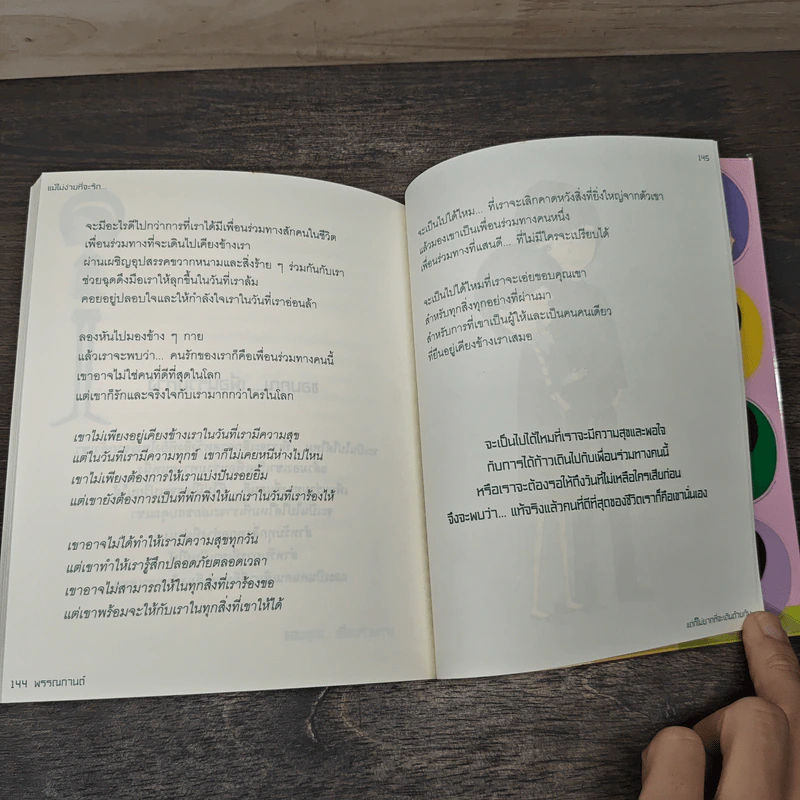 แม้ไม่ง่ายที่จะรัก...
จะมีอะไรดีไปกว่าการที่เราได้มีเพื่อนร่วมทางสักคนในชีวิต
เพื่อนร่วมทางที่จะเดินไปเคียงข้างเรา
ผ่านเผชิญอุปสรรคขวากหนามและสิ่งร้าย ๆ ร่วมกันกับเรา
ช่วยฉุดดึงมือเราให้ลุกขึ้นในวันที่เราล้ม
คอยอยู่ปลอบใจและให้กำลังใจเราในวันที่เราอ่อนล้า
ลองหันไปมองข้าง ๆ กาย
แล้วเราจะพบว่า... คนรักของเราก็คือเพื่อนร่วมทางคนนี้
เขาอาจไม่ใช่คนที่ดีที่สุดในโลก
แต่เขาก็รักและจริงใจกับเรามากกว่าใครในโลก
เขาไม่เพียงอยู่เคียงข้างเราในวันที่เรามีความสุข
แต่ในวันที่เรามีความทุกข์ เขาก็ไม่เคยหนีห่างไปไหน
เขาไม่เพียงต้องการให้เราแบ่งปันรอยยิ้ม
แต่เขายังต้องการเป็นที่พักพิงให้แก่เราในวันที่เราร้องไห้
เขาอาจไม่ได้ทำให้เรามีความสุขทุกวัน
แต่เขาทำให้เรารู้สึกปลอดภัยตลอดเวลา
เขาอาจไม่สามารถให้ในทุกสิ่งที่เราร้องขอ
แต่เขาพร้อมจะให้กับเราในทุกสิ่งที่เขาให้ได้
144 พรรณกานต์
145
จะเป็นไปได้ไหม... ที่เราจะเลิกคาดหวังสิ่งที่ยิ่งใหญ่จากตัวเขา
แล้วมองเขาเป็นเพื่อนร่วมทางคนหนึ่ง
เพื่อนร่วมทางที่แสนดี... ที่ไม่มีใครจะเปรียบได้
จะเป็นไปได้ไหมที่เราจะเอ่ยขอบคุณเขา
สำหรับทุกสิ่งทุกอย่างที่ผ่านมา
สำหรับการที่เขาเป็นผู้ให้และเป็นคนคนเดียว
ที่ยืนอยู่เคียงข้างเราเสมอ
จะเป็นไปได้ไหมที่เราจะมีความสุขและพอใจ
กับการได้ก้าวเดินไปกับเพื่อนร่วมทางคนนี้
หรือเราจะต้องรอให้ถึงวันที่ไม่เหลือใครเสียก่อน
จึงจะพบว่า... แท้จริงแล้วคนที่ดีที่สุดของชีวิตเราก็คือเขานั่นเอง
แต่ก็ไม่ยากที่จะเดินด้วยกัน